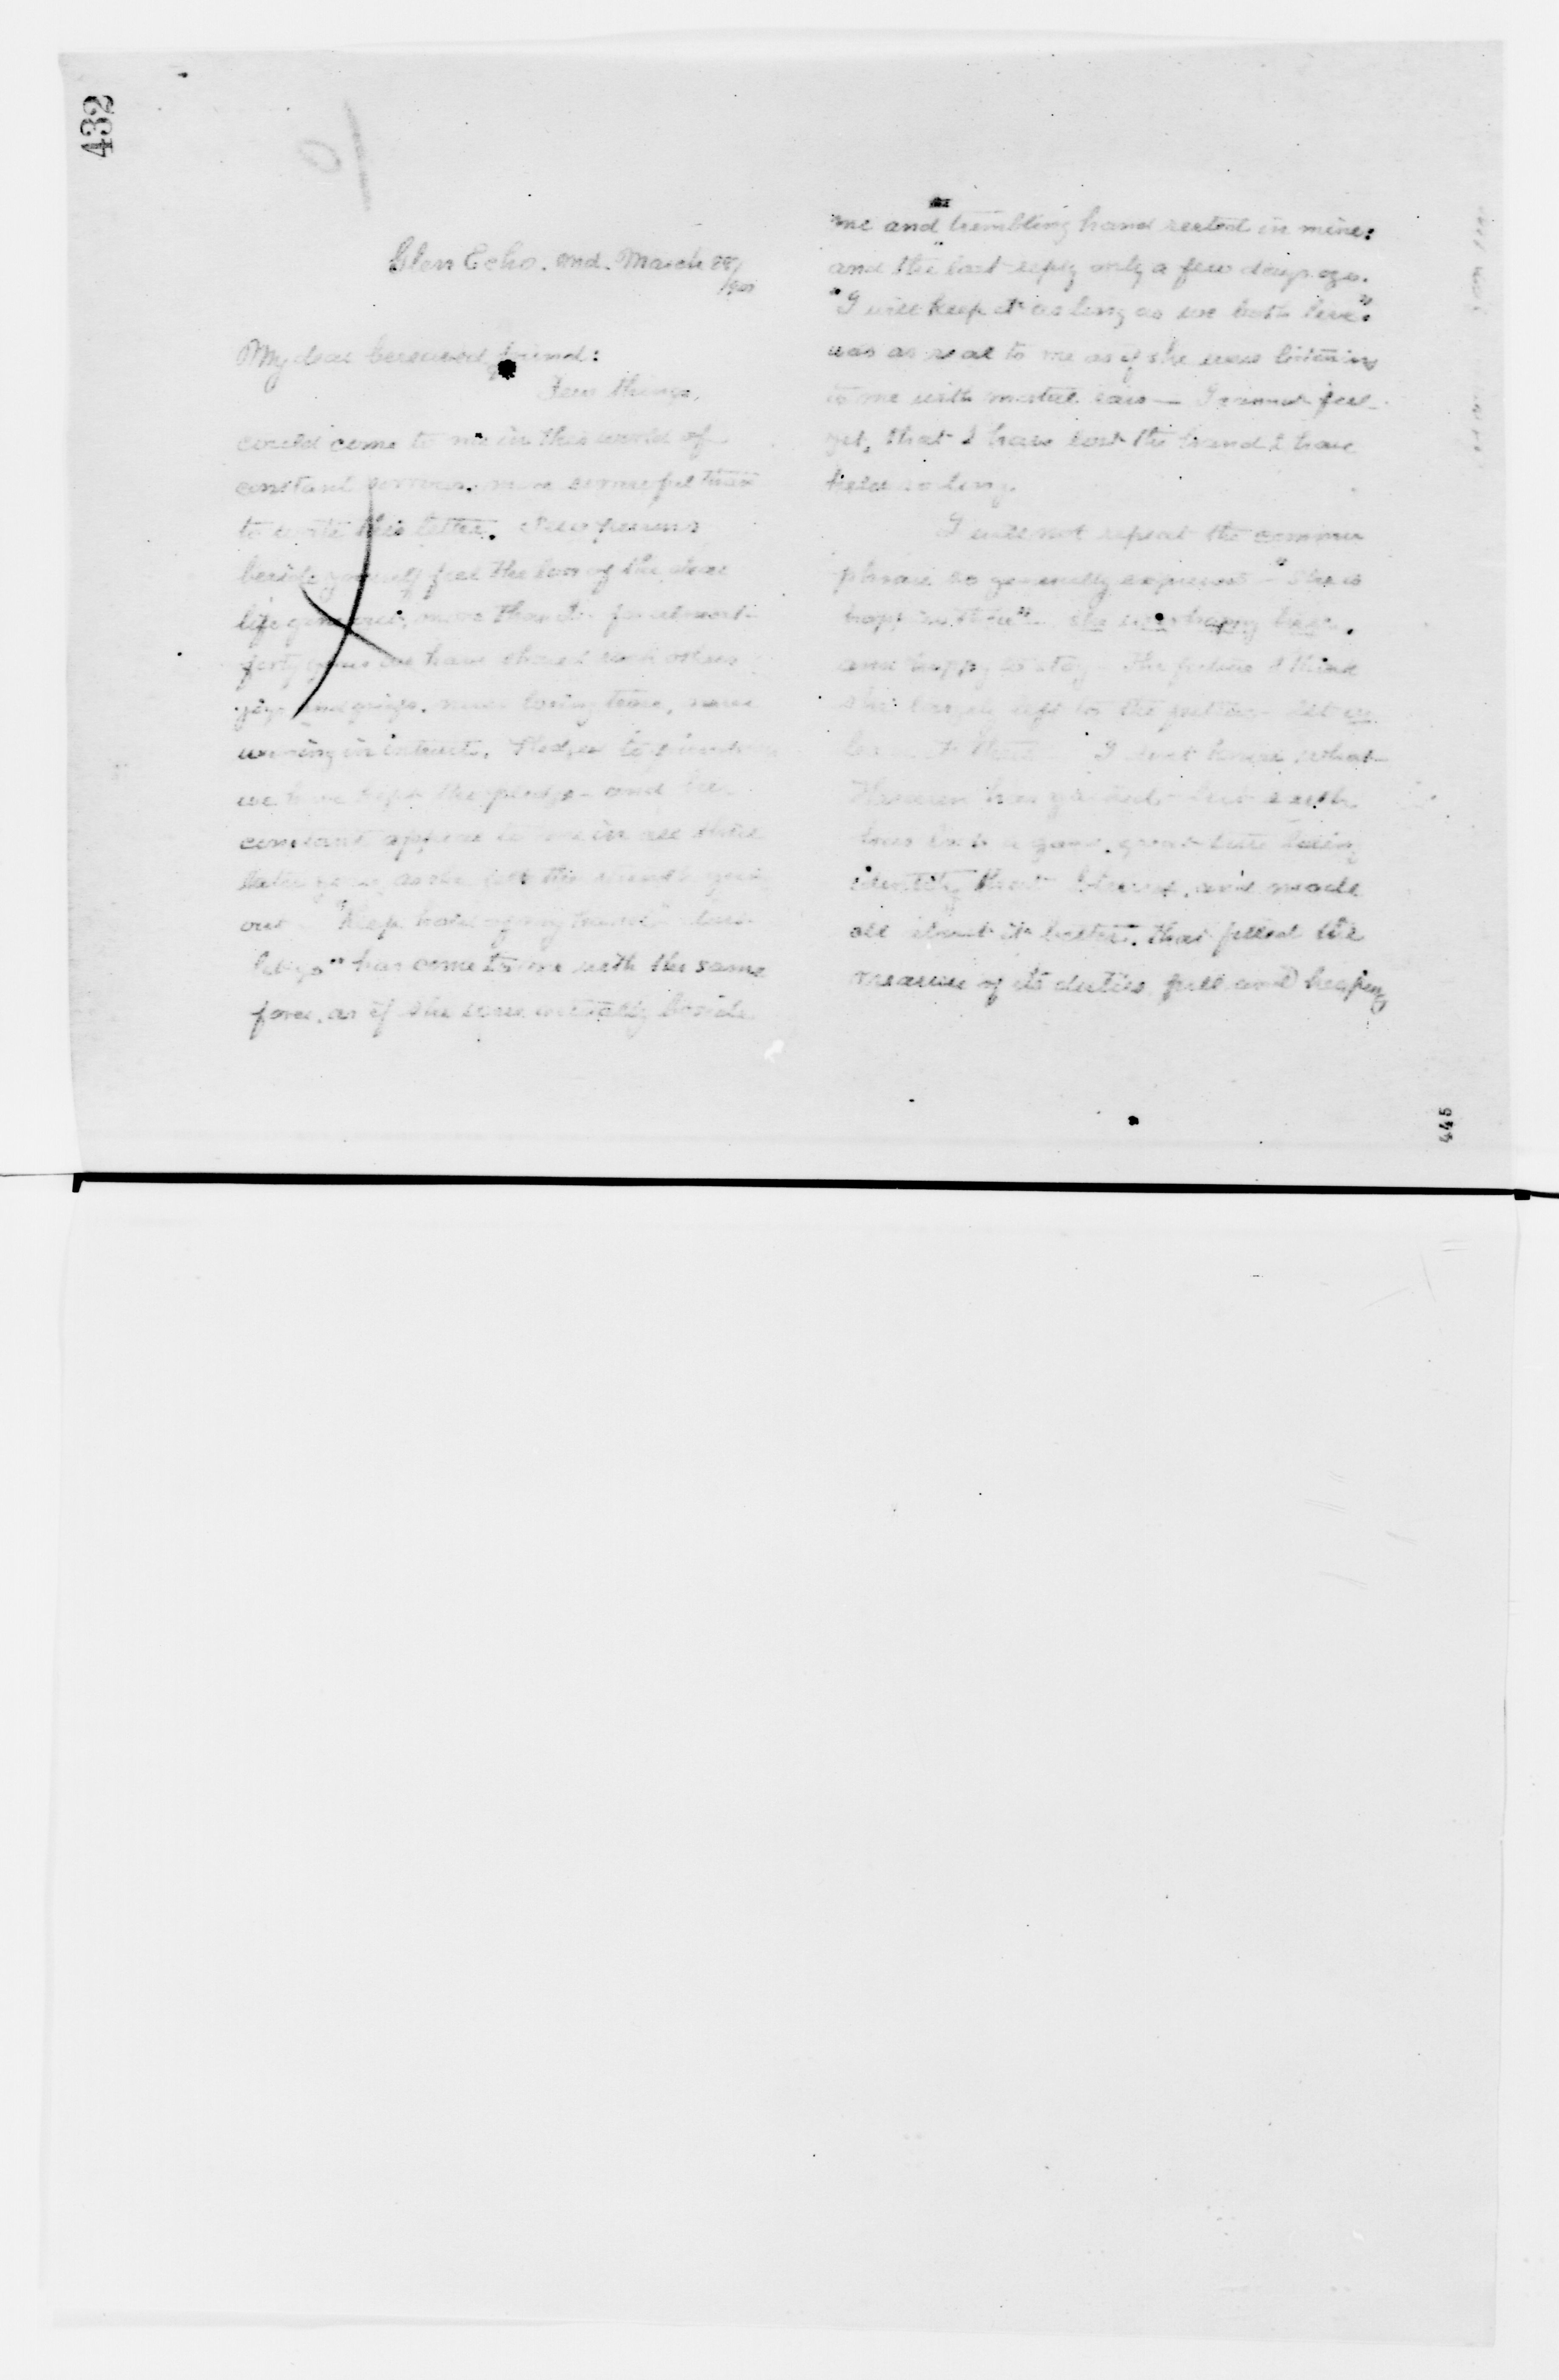 432
Glen Echo. Md. March 28/
1901
My dear bereaved friend:
Few things,
could come to me in this world of
constant sorrow, more sorrowful than
to write this letter. Few persons
beside yourself feel the loss of the dear
life gone out, more than I. for almost
forty years we have shared each others
joys and griefs. never losing trace, never
in interests. Pledged to
we have kept the pledge - and her
constant appeal to me in all these
later years, as she felt the
out "Keep hold of my hand"
has come to me with the same
force, as if she were actually beside
me and trembling hand rested in mine:
and the last reply only a few days ago.
"I will keep it as long as we both live".
was as real to me as if she were listening
to me with mortal ears — I cannot feel
yet, that I have lost the hand I have
held so long.
I will not repeat the common
phrase so generally expressed - "She is
happy she was happy here.
and happy to stay - the future I think
she largely left to the future - let us
leave it there - I don't know what
Heaven has gained - but earth
has lost a great little being
identity that blessed, and made
all about it better. that filled the
measure of its duties full and heaping
445